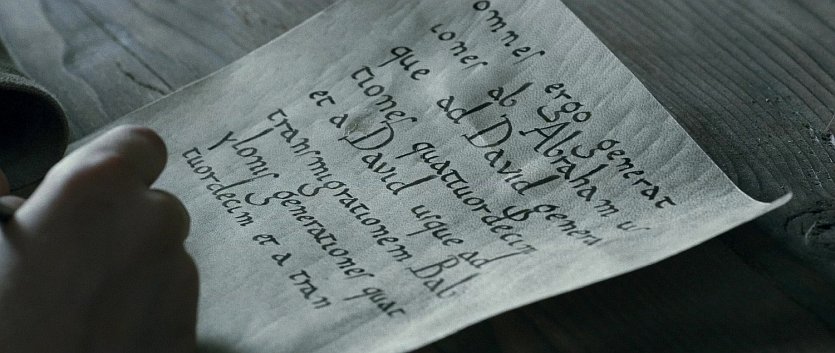 omnes ergo generat
iones ab Abraham us
que ad David genera
tiones quattuordecim
et a David usque ad
transmigrationem Bab
ylonis generationes quat
tuordecim et a tran